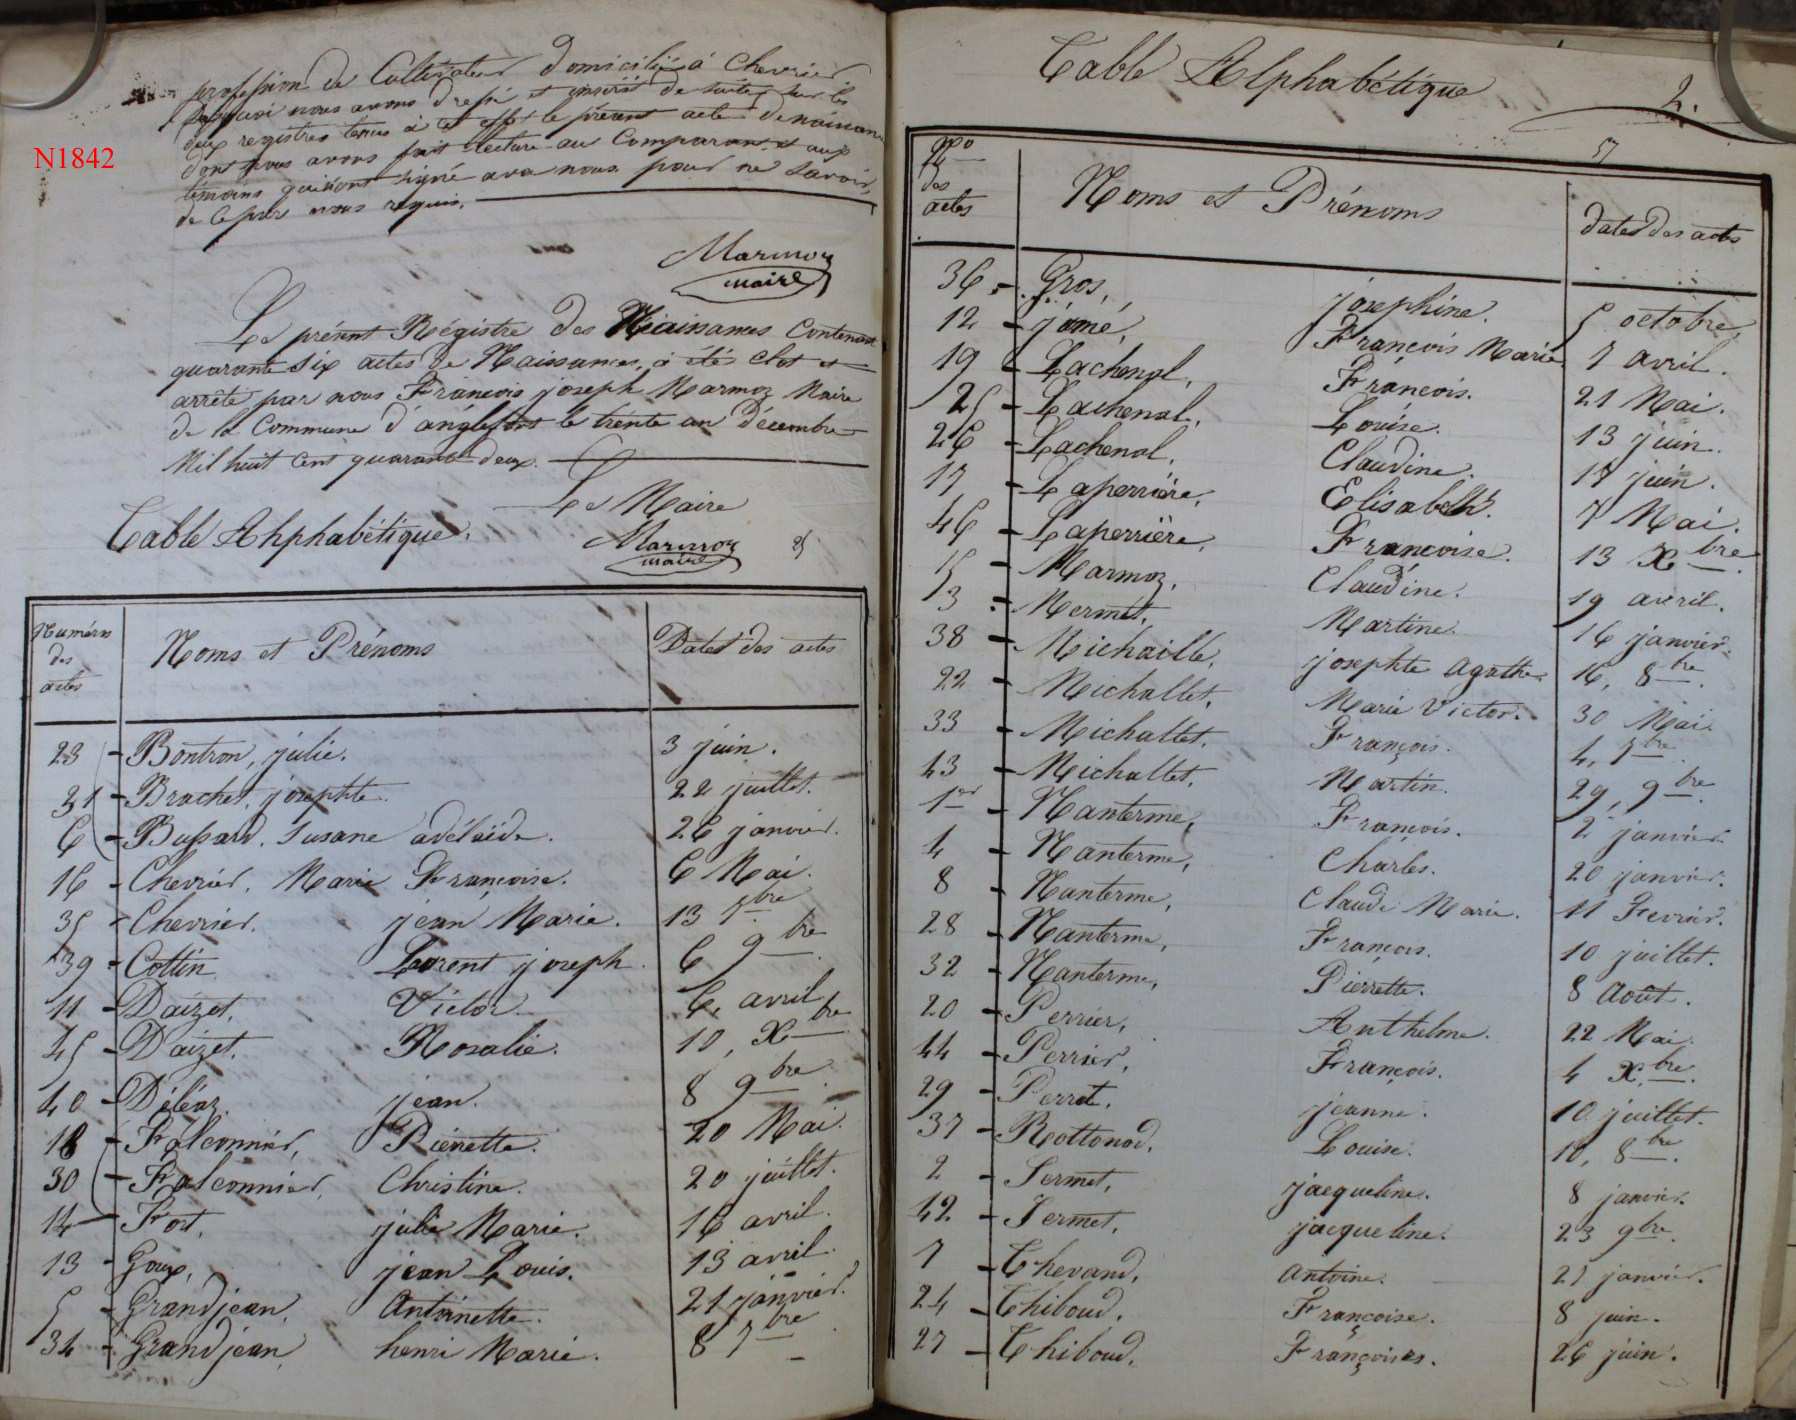 N1842
profession de Cultivateur domicilié à Chevrier
Desquoi nous avons dressé et inscrit de suite sur les
deux registres tenus à cet effet le présent acte de naissance
dont nous avons fait lecture au Comparant et aux
témoins qui n'ont signé avec nous pour ne savoir,
de ce par nous requis.
Marmoz
maire
Le présent Régistre des Naissances Contenant
quarante six actes de Naissances, à été clos et
arrêté par nous François joseph Marmoz Maire
de la Commune d'anglefort le trente un décembre
Mil huit cent quarante deux.
Le Maire
Table Alphabétique.
Marmoz
maire
Numéros des actes | Noms et Prénoms | Dates des actes
23 - Bontron, julie. 3 juin.
31 - Brachet, josephte. 22 juillet.
6 - Bussard, Susane adélaïde. 26 janvier.
16 - Chevrier, Marie Françoise. 6 Mai.
35 - Chevrier. jean Marie. 13 7bre
39 - Cottin Lorent joseph. 6 9bre
11 - Daizet, Victor 6, avril
45 - Daizet. Rosalie. 10, Xbre
40 - Déléaz. jean. 8 9bre
18 - Falconnier, Piérrette. 20 Mai.
30 - Falconnier, Christine. 20 juillet.
14 - Fort, julie Marie. 16 avril.
13 - Goux, jean Louis. 13 avril.
5 - Grandjean, Antoinette. 21 janvier.
34 - Grandjean, henri Marie. 8 7bre
Table Alphabétique
2.
No des actes | Noms et Prénoms | dates des actes
36 - Gros, josephine. 5 octobre.
12 - jómé, François Marie 7 avril.
19 - Lachenal, François. 21 Mai.
25 - Lachenal, Louise. 13 juin.
26 - Lachenal, Claudine. 17 juin.
17 - Laperrière, Elisabeth. 7 Mai.
46 - Laperrière, Françoise. 13 Xbre
15 - Marmoz, Claudine. 19 avril.
3 - Mermet, Martine. 16 janvier.
38 - Michaille, josephte Agathe. 16, 8bre.
22 - Michallet, Marie Victor. 30 Mai.
33 - Michallet, François. 4, 7bre.
43 - Michallet, Martin. 29, 9bre.
1er - Nanterme, François. 2 janvier.
4 - Nanterme, Charles. 20 janvier.
8 - Nanterme, Claude Marie. 11 Fevrier.
28 - Nanterme, François. 10 juillet.
32 - Nanterme, Pierrette. 8 Août.
20 - Perrier, Anthelme. 22 Mai.
44 - Perrier, François. 4 Xbre.
29 - Perret, jeanne. 10 juillet.
37 - Rottonod, Louise. 10, 8bre.
2 - Sermet, jacqueline. 8 janvier.
42 - Sermet, jacqueline. 23 9bre.
7 - Thevand, Antoine. 27 janvier.
24 - Thiboud, Françoise. 8 juin.
27 - Thiboud, François. 26 juin.